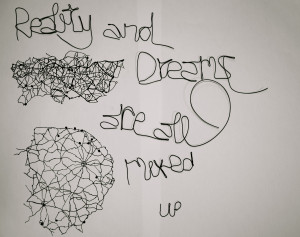 Reality and
Dreams
are all
mixed
up